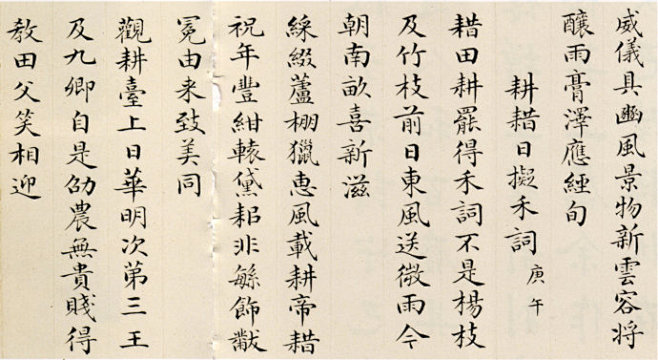 威儀具豳風景物新雲容將
釀雨膏澤應經旬
耕耤日擬禾詞 庚午
耤田耕罷得禾詞不是楊枝
及竹枝前日東風送微雨今
朝南畝喜新滋
綵綴蘆棚獵惠風載耕帝耤
祝年豐紺轅黛耜非緐飾黻
冕由来致美同
觀耕臺上日華明次第三王
及九卿自是劭農無貴賤得
教田父笑相迎